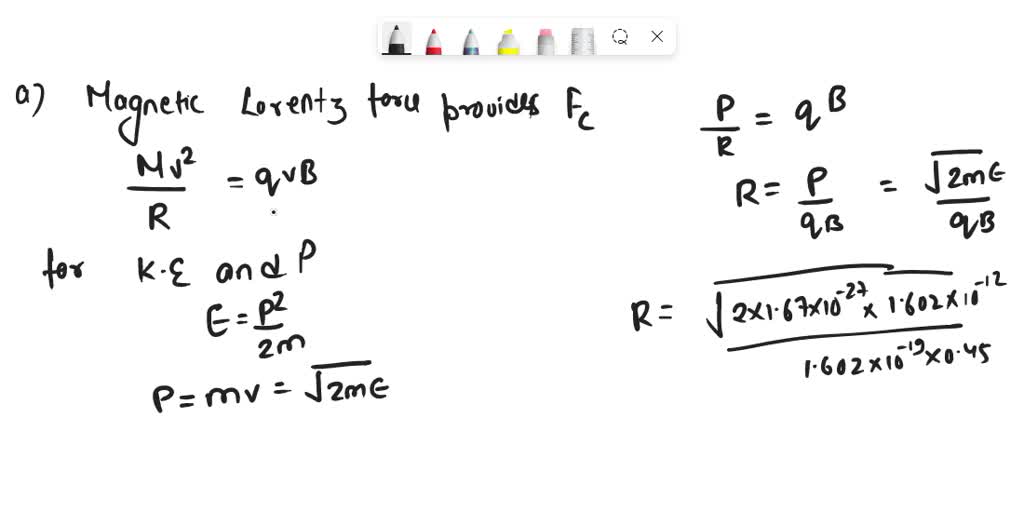 a) Magnetic Lorentz force provides Fc
Mv²/R = qvB
for K.E and P
E = P²/2m
P = mv = √2mE
P/R = qB
R = P/qB = √2mE/qB
R = √2×1.67×10⁻²⁷ × 1.602×10⁻¹²/1.602×10⁻¹⁹×0.45